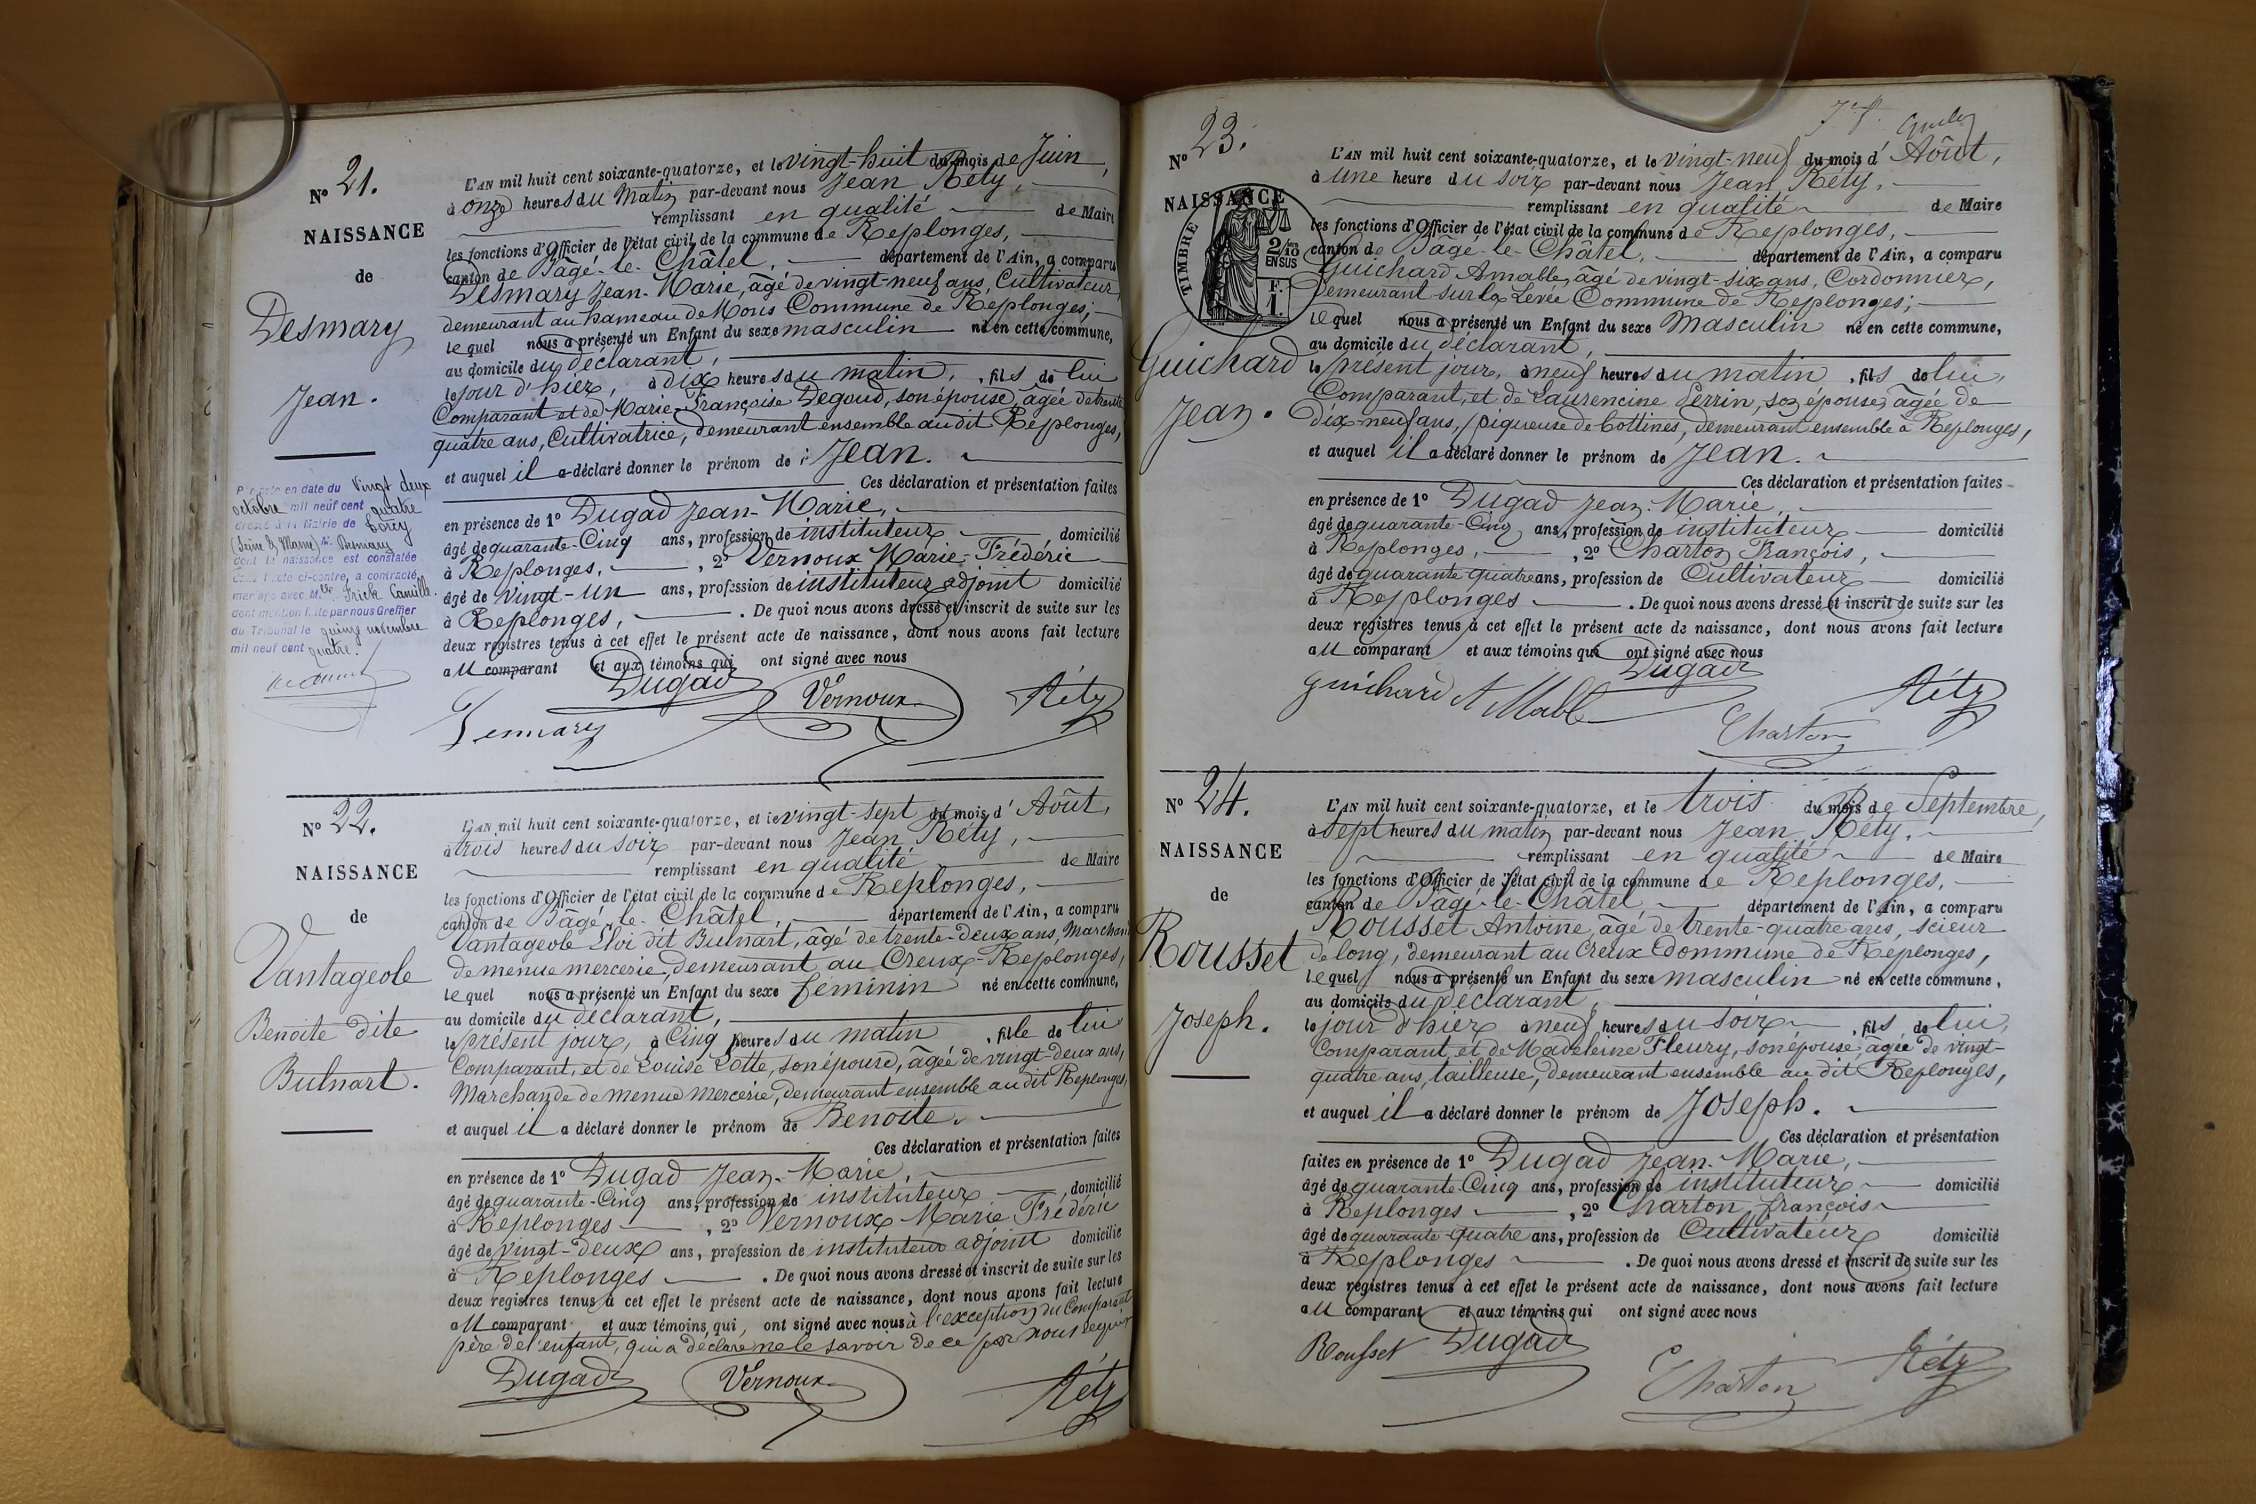 N° 21.
NAISSANCE
de
Desmary
Jean.
L'AN mil huit cent soixante-quatorze, et le vingt-huit du mois de Juin,
à onze heures du matin par-devant nous Jean Réty,
remplissant en qualité de Maire
les fonctions d'Officier de l'état civil de la commune de Replonges,
canton de Bâgé-le-Châtel, département de l'Ain, a comparu
Desmary Jean-Marie, âgé de vingt-neuf ans, Cultivateur,
demeurant au hameau de Mons Commune de Replonges;
lequel nous a présenté un Enfant du sexe masculin né en cette commune,
au domicile du déclarant,
le jour d'hier, à dix heures du matin, fils de lui
Comparant et de Marie-Françoise Degoud, son épouse, âgée de trente
quatre ans, Cultivatrice, demeurant ensemble au dit Replonges,
et auquel il a déclaré donner le prénom de : Jean.
Ces déclaration et présentation faites
en présence de 1° Dugad Jean-Marie,
âgé de quarante-Cinq ans, profession de instituteur domicilié
à Replonges, , 2° Vernoux Marie-Frédéric
âgé de vingt-un ans, profession de instituteur adjoint domicilié
à Replonges, . De quoi nous avons dressé et inscrit de suite sur les
deux registres tenus à cet effet le présent acte de naissance, dont nous avons fait lecture
au comparant et aux témoins qui ont signé avec nous
Dugad Vernoux Réty
Desmary
en date du vingt deux
octobre mil neuf cent quatre
Mairie de Torcy
(Seine & Marne) Mr. Desmary
dont la naissance est constatée
dans l'acte ci-contre, a contracté
mariage avec Mlle Frick Camille.
dont mention faite par nous Greffier
du Tribunal le quinze novembre
mil neuf cent quatre.
N° 22.
NAISSANCE
de
Vantageole
Benoite dite
Bulnart.
L'AN mil huit cent soixante-quatorze, et le vingt-sept du mois d' Août,
à trois heures du soir par-devant nous Jean Réty,
remplissant en qualité de Maire
les fonctions d'Officier de l'état civil de la commune de Replonges,
canton de Bâgé-le-Châtel, département de l'Ain, a comparu
Vantageole Eloi dit Bulnart, âgé de trente-deux ans, Marchand
de menue mercerie, demeurant au Creux-Replonges,
lequel nous a présenté un Enfant du sexe féminin né en cette commune,
au domicile du déclarant,
le présent jour, à Cinq heures du matin , fille de lui
Comparant, et de Louise Lotte, son épouse, âgée de vingt-deux ans,
Marchande de menue mercerie, demeurant ensemble au dit Replonges,
et auquel il a déclaré donner le prénom de Benoite.
Ces déclaration et présentation faites
en présence de 1° Dugad Jean-Marie,
âgé de quarante-Cinq ans, profession de instituteur domicilié
à Replonges , 2° Vernoux Marie Frédéric
âgé de vingt-deux ans, profession de instituteur adjoint domicilié
à Replonges . De quoi nous avons dressé et inscrit de suite sur les
deux registres tenus à cet effet le présent acte de naissance, dont nous avons fait lecture
au comparant et aux témoins qui, ont signé avec nous à l'exception du Comparant
père de l'enfant, qui a déclaré ne le savoir de ce par nous requis
Dugad Vernoux Réty
N° 23.
NAISSANCE
TIMBRE
2/10
EN SUS
F.
1.
Guichard
Jean.
L'AN mil huit cent soixante-quatorze, et le vingt-neuf du mois d' Août,
à une heure du soir par-devant nous Jean Réty,
remplissant en qualité de Maire
les fonctions d'Officier de l'état civil de la commune de Replonges,
canton de Bâgé-le-Châtel, département de l'Ain, a comparu
Guichard Amable, âgé de vingt-six ans, Cordonnier,
demeurant sur la Levée Commune de Replonges;
lequel nous a présenté un Enfant du sexe Masculin né en cette commune,
au domicile du déclarant,
le présent jour, à neuf heures du matin , fils de lui,
Comparant, et de Laurencine Perrin, son épouse, âgée de
dix-neuf ans, piqueuse de bottines, demeurant ensemble à Replonges,
et auquel il a déclaré donner le prénom de Jean.
Ces déclaration et présentation faites
en présence de 1° Dugad Jean-Marie,
âgé de quarante-Cinq ans, profession de instituteur domicilié
à Replonges, , 2° Charton François,
âgé de quarante quatre ans, profession de Cultivateur domicilié
à Replonges . De quoi nous avons dressé et inscrit de suite sur les
deux registres tenus à cet effet le présent acte de naissance, dont nous avons fait lecture
au comparant et aux témoins qui ont signé avec nous
Dugad
guichard AMabl Réty
Charton
N° 24.
NAISSANCE
de
Rousset
Joseph.
L'AN mil huit cent soixante-quatorze, et le trois du mois de Septembre,
à sept heures du matin par-devant nous Jean Réty,
remplissant en qualité de Maire
les fonctions d'Officier de l'état civil de la commune de Replonges,
canton de Bâgé-le-Châtel département de l'Ain, a comparu
Rousset Antoine, âgé de trente-quatre ans, scieur
de long, demeurant au Creux Commune de Replonges,
lequel nous a présenté un Enfant du sexe masculin né en cette commune,
au domicile du déclarant,
le jour d'hier à neuf heures du soir , fils de lui,
Comparant, et de Madeleine Fleury, son épouse, âgée de vingt-
quatre ans, tailleuse, demeurant ensemble au dit Replonges,
et auquel il a déclaré donner le prénom de Joseph.
Ces déclaration et présentation
faites en présence de 1° Dugad Jean-Marie,
âgé de quarante-Cinq ans, profession de instituteur domicilié
à Replonges , 2° Charton françois
âgé de quarante-quatre ans, profession de Cultivateur domicilié
à Replonges . De quoi nous avons dressé et inscrit de suite sur les
deux registres tenus à cet effet le présent acte de naissance, dont nous avons fait lecture
au comparant et aux témoins qui ont signé avec nous
Rousset Dugad
Charton Réty